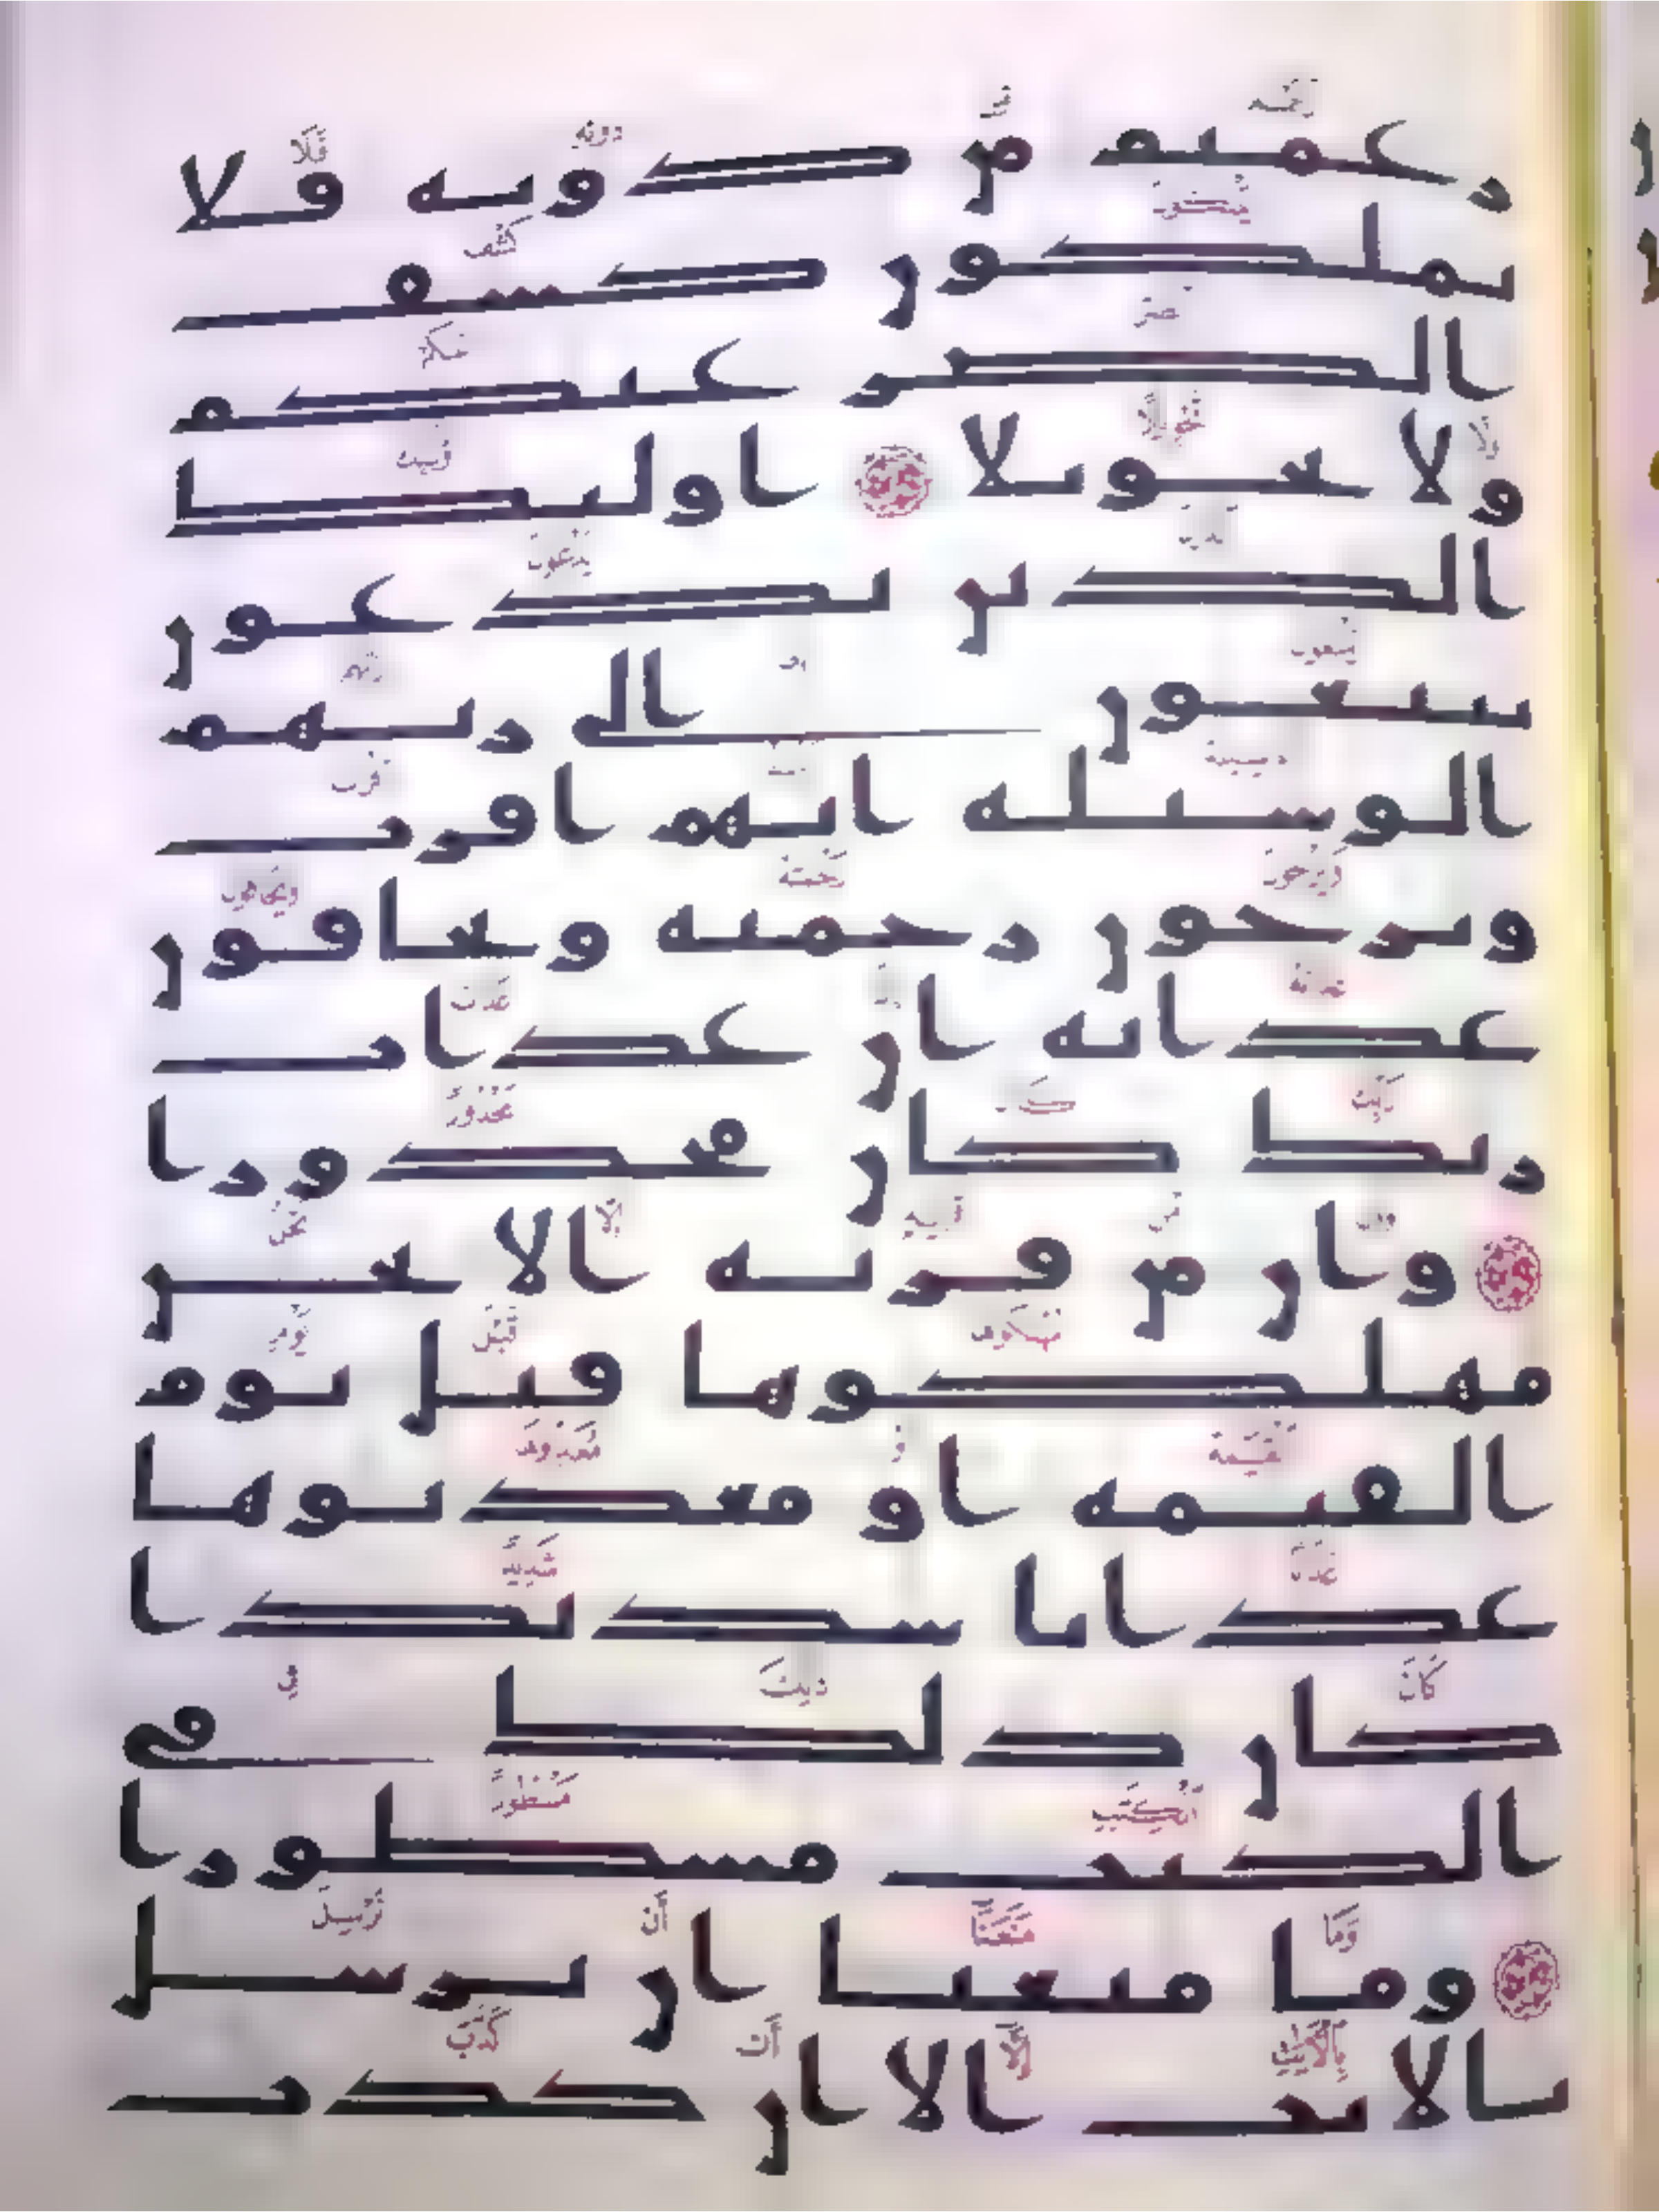 زعمتم من دونه فلا
يملكون كشف
الضر عنكم
ولا تحويلا اوليك
الذين يدعون
يبتغون الى ربهم
الوسيلة ايهم اقرب
ويرجون رحمته ويخافون
عذابه ان عذاب
ربك كان محذورا
وان من قرية الا نحن
مهلكوها قبل يوم
القيمة او معذبوها
عذابا شديدا
كان ذلك في
الكتب مسطورا
وما منعنا ان نرسل
بالايت الا ان كذب